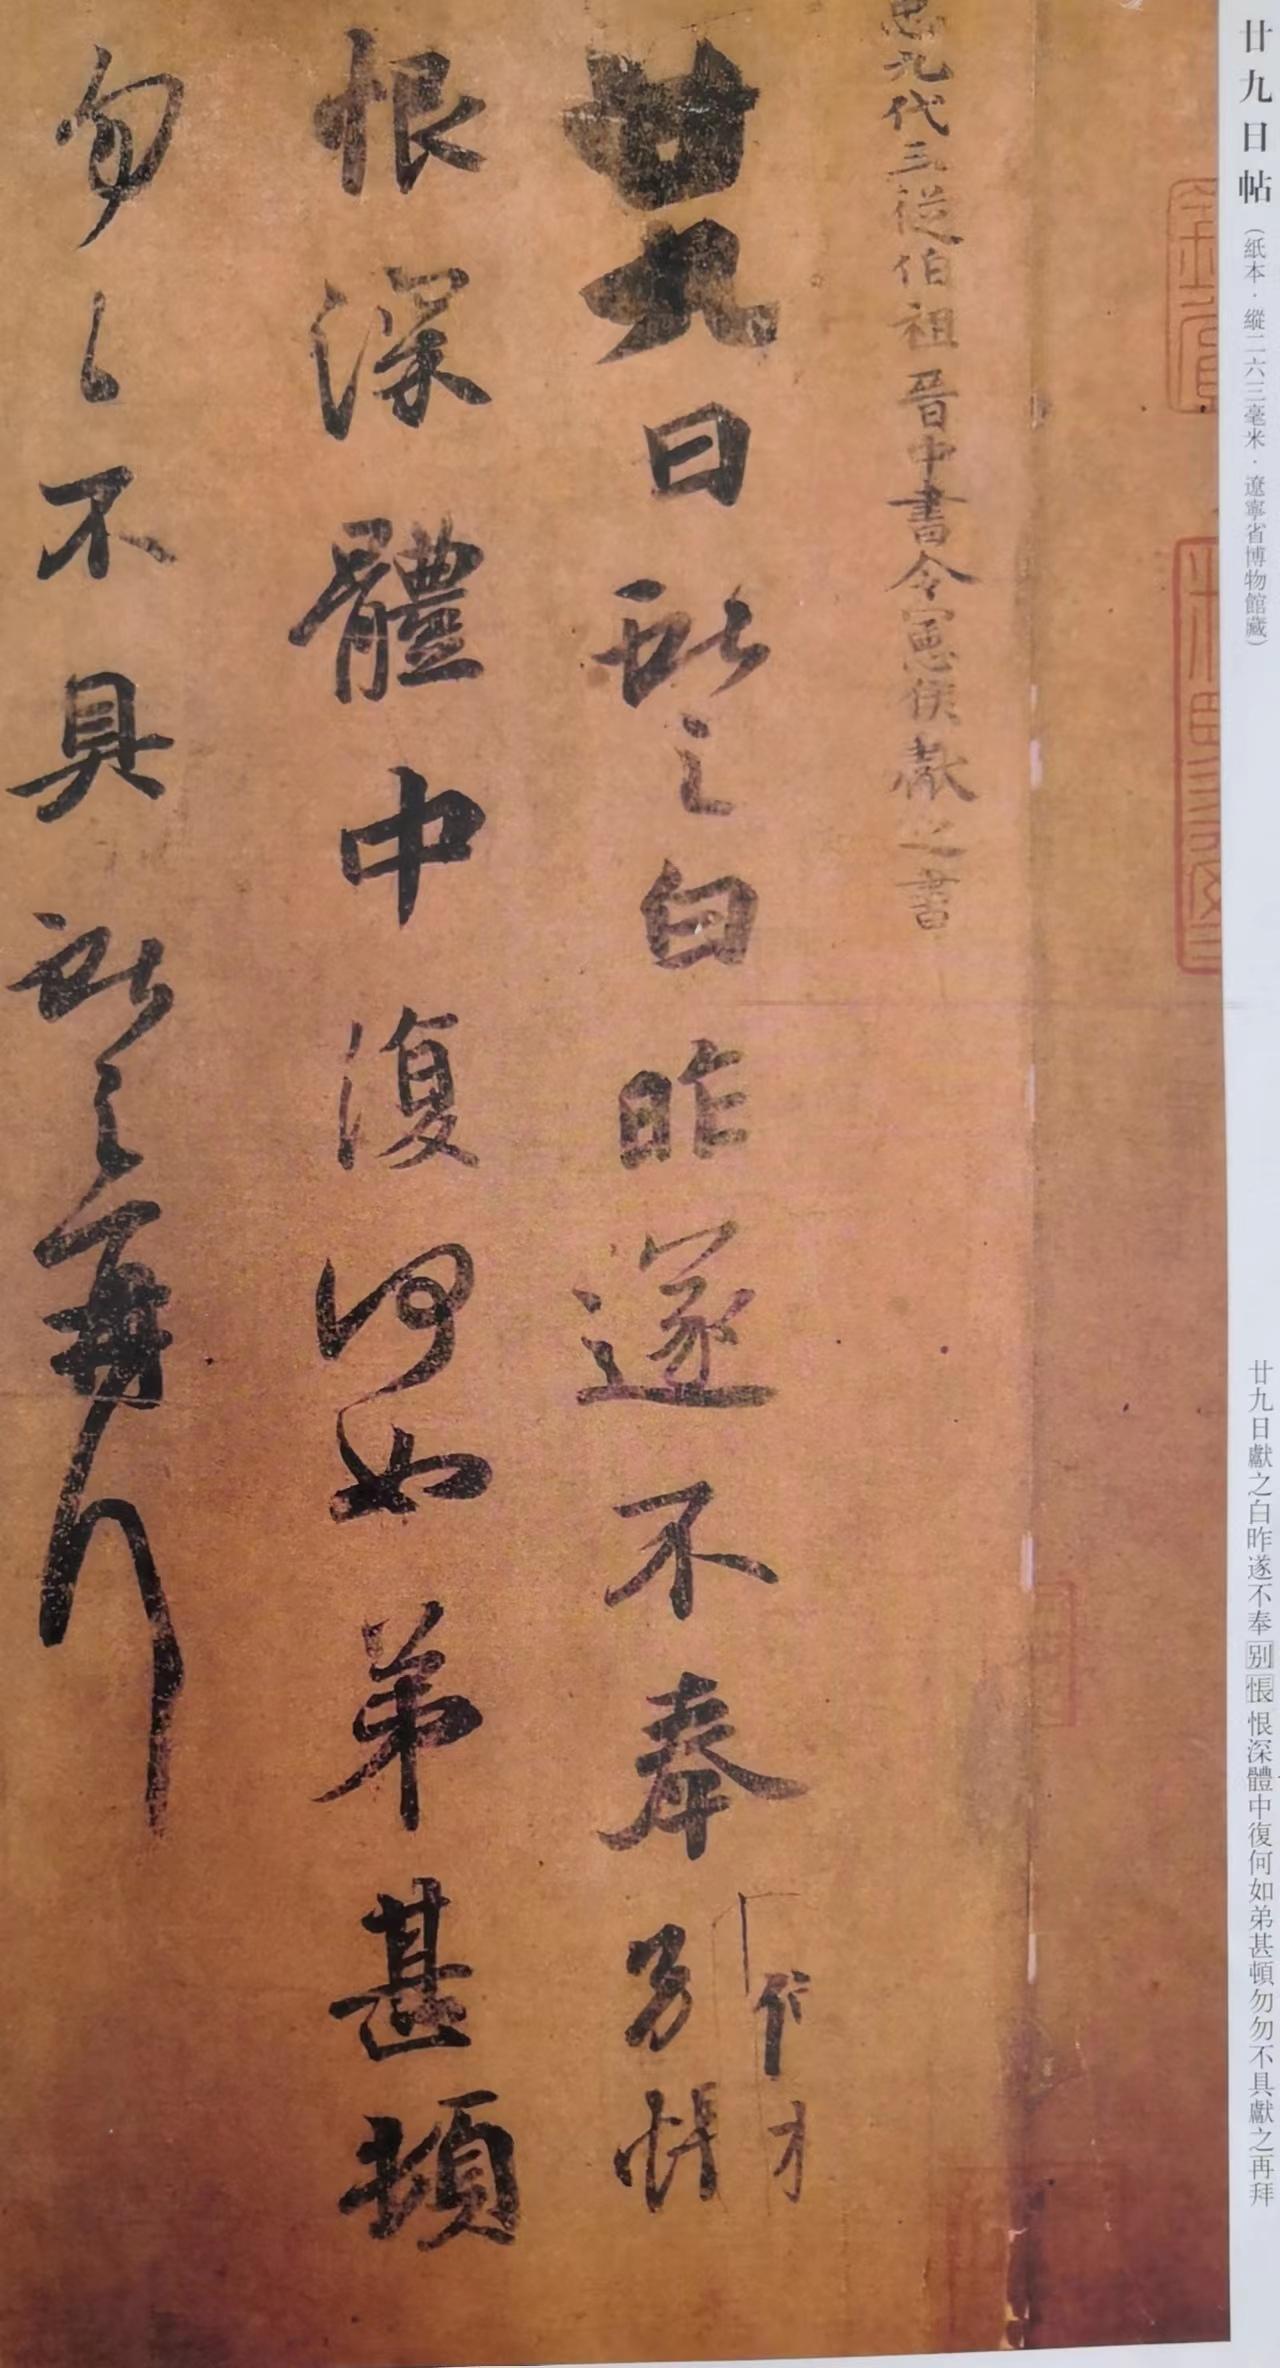 廿九日帖（紙本·縱二六三毫米·遼寧省博物館藏）
廿九日獻之白昨遂不奉别悵恨深體中復何如弟甚頓勿勿不具獻之再拜
臣九代三從伯祖晉中書令憲侯獻之書
廿九日獻之白昨遂不奉别悵
恨深體中復何如弟甚頓
勿勿不具獻之再拜